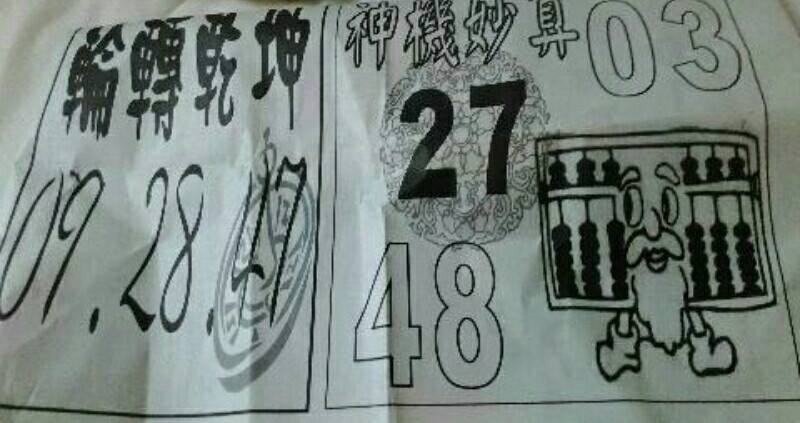 輪轉乾坤
09.28.47
神機妙算
03
27
48